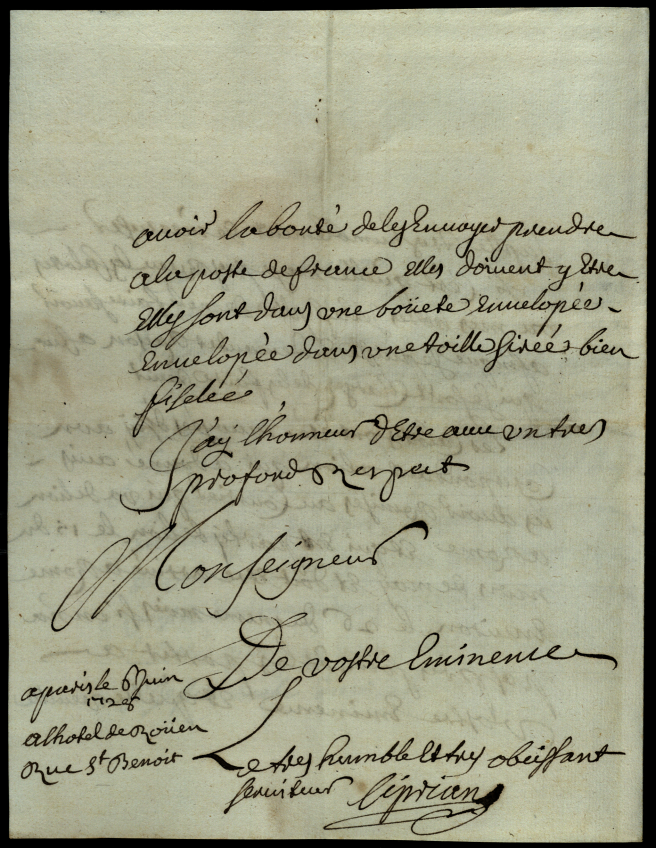 avoir la bonté de les Envoyer prendre
a la poste de france elles doivent y Etre
elles sont dans une boüete Envelopée
Envelopée dans une toille sirée bien
fiselée
J'ay l'honneur d'Etre avec un tres
profond Respect
Monseigneur
De vostre Eminence
a paris le 8 Juin
1728
a l'hotel de Roüen
Rue St Benoit
Le tres humble Et tres obeissant
serviteur Ciprian